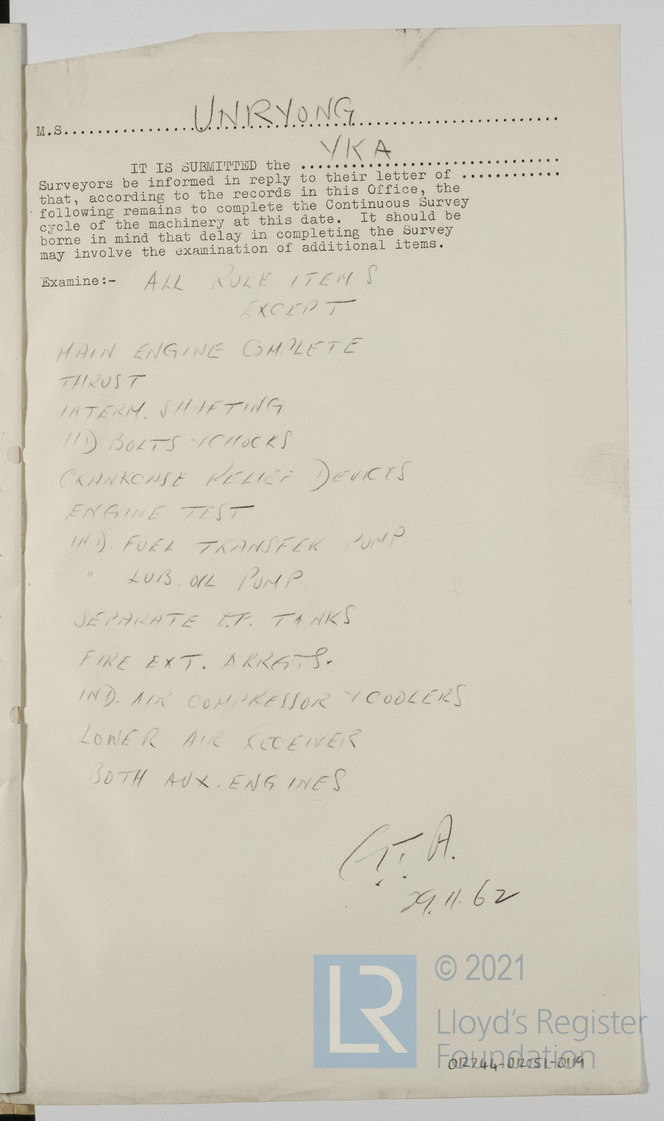 M.S. UNRYONG
YKA
IT IS SUBMITTED the
Surveyors be informed in reply to their letter of
that, according to the records in this Office, the
following remains to complete the Continuous Survey
cycle of the machinery at this date. It should be
borne in mind that delay in completing the Survey
may involve the examination of additional items.
Examine:- ALL RULE ITEMS
EXCEPT
MAIN ENGINE COMPLETE
THRUST
INTERM. SHAFTING
HD BOLTS & CHOCKS
CRANKCASE RELIEF DEVICES
ENGINE TEST
IND. FUEL TRANSFER PUMP
" LUB. OIL PUMP
SEPARATE O.F. TANKS
FIRE EXT. ARRGTS.
IND. AIR COMPRESSOR & COOLERS
LOWER AIR RECEIVER
BOTH AUX. ENGINES
G.A.
29.11.62
LR
© 2021
Lloyd's Register
Foundation
012744-012751-0119